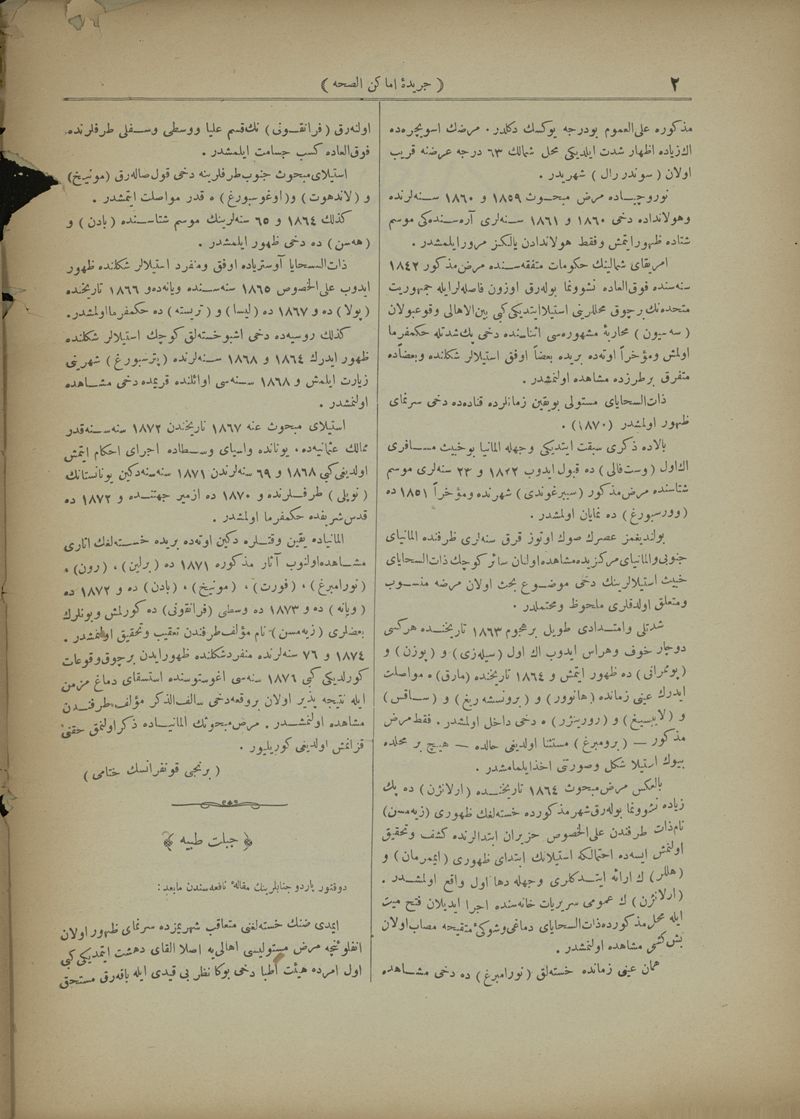 ٢
( جريدۀ اماكن الصحه )
مذكوره على العموم بودرجه يوكسك دكلدر . مرضك اسويچره ده
اك زياده اظهار شدت ايلديكى محل شمالك ٦٣ درجه عرضنه قريب
اولان ( سوندر رال ) شهريدر .
نوروچياده مرض مبحوث ١٨٥٩ و ١٨٦٠ سنه لرنده
وهولانداده دخى ١٨٦٠ و ١٨٦١ سنه لرى آره سنده كى موسم
شتاده ظهور ايتمش وفقط هولاندادن يالكز مرور ايلمشدر .
امريقاى شمالينك حكومات متفقه سنده مرض مذكور ١٨٤٢
سنه سنده فوق العاده نشوونما بوله رق اوزون فاصله لرايله جمهوريت
متحده نك برچوق محللرينى استيلا ايتديكى كبى بين الاهالى وقوعبولان
( سه سيون ) محاربۀ مشهوره سى اثناسنده دخى پك شدتله حكمفرما
اولمش ومؤخراً اوته ده بريده بعضاً اوفق استيلالر شكلنده وبعضاده
متفرق برطرزده مشاهده اولنمشدر .
ذات السحاياى مستولى بويقين زمانلرده قناده ده دخى سرنماى
ظهور اولمشدر (١٨٧٠) .
بالاده ذكرى سبقت ايتديكى وجهله المانيا بوخبيث مسافرى
اك اول ( وست فالى ) ده قبول ايدوب ١٨٢٢ و ٢٣ سنه لرى موسم
شتاسنده مرض مذكور ( سيبرغوندى ) شهرنده ومؤخراً ١٨٥١ ده
( وورسبورغ ) ده نمايان اولمشدر .
بولنديغمز عصرك صوك اوتوز قرق سنه لرى ظرفنده المانياى
جنوبى والمانياى مركزيده مشاهده اولنان سائر كوچك ذات السحاياى
خبيث استيلالرينك دخى موضوع بحث اولان مرضه منسوب
ومتعلق اولدقلرى ملحوظ ومحتملدر .
شدتلى وامتدادى طويل برهجوم ١٨٦٣ تاريخنده هركسى
دوچار خوف وهراس ايدوب اك اول ( سيله زى ) و ( پوزن ) و
( پومرانى ) ده ظهور ايتمش و ١٨٦٤ تاريخنده ( مارق ) ه مواصلت
ايدرك عينى زمانده ( هانوور ) و ( برونسشه ريغ ) و ( ساقس )
و ( لايبسيغ ) و ( رورينژر ) ه دخى داخل اولمشدر . فقط مرض
مذكور — ( برومبرغ ) مستثنا اولديغى حالده — هيچ بر محلده
بيوك استيلا شكل وصورتى اخذ ايلمامشدر .
بالعكس مرض مبحوث ١٨٦٤ تاريخنده ( ارلانژن ) ده پك
زياده نشوونما بوله رق شهر مذكورده خسته لغك ظهورى ( زيه مسن )
نام ذات طرفندن على الخصوص حزيران ابتدالرنده كشف وتحقيق
اولنمش ايسه ده احتمالكه استيلانك ابتداى ظهورى ( ايمرمان ) و
( هللر ) ك ارائه ايتدكلرى وجهله دها اول واقع اولمشدر .
( ارلانژن ) ك عمومى سريريات خانه سنده اجرا ايديلان فتح ميت
ايله محل مذكورده ذات السحاياى دماغى وشوكئ متقيحه مصاب اولان
بش كشى مشاهده اولنمشدر .
همان عينى زمانده خسته لق ( نورامبرغ ) ده دخى مشاهده
اولنه رق ( فرانقونى ) نك قسم عليا ووسطى وسفلى طرفلرنده
فوق العاده كسب جسامت ايلمشدر .
استيلاى مبحوث جنوب طرفلرينه دخى قول صاله رق ( مونيخ )
و ( لاندهوت ) و ( اوغوسبورغ ) ه قدر مواصلت ايتمشدر .
كذلك ١٨٦٤ و ٦٥ سنه لرينك موسم شتاسنده ( بادن ) و
( هه سن ) ده دخى ظهور ايلمشدر .
ذات السحايا آوسترياده اوفق ومنفرد استيلالر شكلنده ظهور
ايدوب على الخصوص ١٨٦٥ سنه سنده ويانه ده و ١٨٦٦ تاريخنده
( پولا ) ده و ١٨٦٧ ده ( ليسا ) و ( تريسته ) ده حكمفرما اولمشدر .
كذلك روسيه ده دخى اشبو خسته لق كوچك استيلالر شكلنده
ظهور ايدرك ١٨٦٤ و ١٨٦٨ سنه لرنده ( پترسبورغ ) شهرينى
زيارت ايلمش و ١٨٦٨ سنه سى اوائلنده قريمده دخى مشاهده
اولنمشدر .
استيلاى مبحوث عنه ١٨٦٧ تاريخندن ١٨٧٢ سنه سنه قدر
ممالك عثمانيه ده ، يونانده واسياى وسطاده اجراى احكام ايتمش
اولديغى كبى ١٨٦٨ و ٦٩ سنه لرندن ١٨٧١ سنه سنه دكين يونانستانك
( نوپلى ) طرفلرنده و ١٨٧٠ ده ازمير جهتنده و ١٨٧٢ ده
قدس شريفده حكمفرما اولمشدر .
المانياده يقين وقتلره دكين اوته ده بريده خسته لغك اثارى
مشاهده اولنوب آثار مذكوره ١٨٧١ ده ( برلين ) ، ( رون ) ،
( نورامبرغ ) ، ( فورت ) ، ( مونيخ ) ، ( بادن ) ده و ١٨٧٢ ده
( ويانه ) ده و ١٨٧٣ ده وسطى ( فرانقونى ) ده كورلمش وبونلرك
بعضلرى ( زيه مسن ) نام مؤلف طرفندن تعقيب وتحقيق اولنمشدر .
١٨٧٤ و ٧٦ سنه لرنده منفرد شكلنده ظهور ايدن برچوق وقوعات
كورلديكى كبى ١٨٧٦ سنه سى اغوستوسنده استسقاى دماغ مزمن
ايله نتيجه پذير اولان بروقعه دخى سالف الذكر مؤلف طرفندن
مشاهده اولنمشدر . مرض مبحوثك المانياده ذكر اولنمق حقنى
قزانمش اولديغى كوريليور .
( برنجى قونفرانسك ختامى )
﴿ جبلت طبيه ﴾
دوقتور پاردو جنابلرينك مقالۀ نافعه سندن مابعد :
ايمدى ضنك خسته لغنى متعاقب شهريمزده سرنماى ظهور اولان
انفلوئنچه مرض مستوليسى اهالى يه اصلا القاى دهشت ايتمديكى كبى
اول امرده هيئت اطبا دخى بوكا نظر بى قيدى ايله باقه رق مستحق